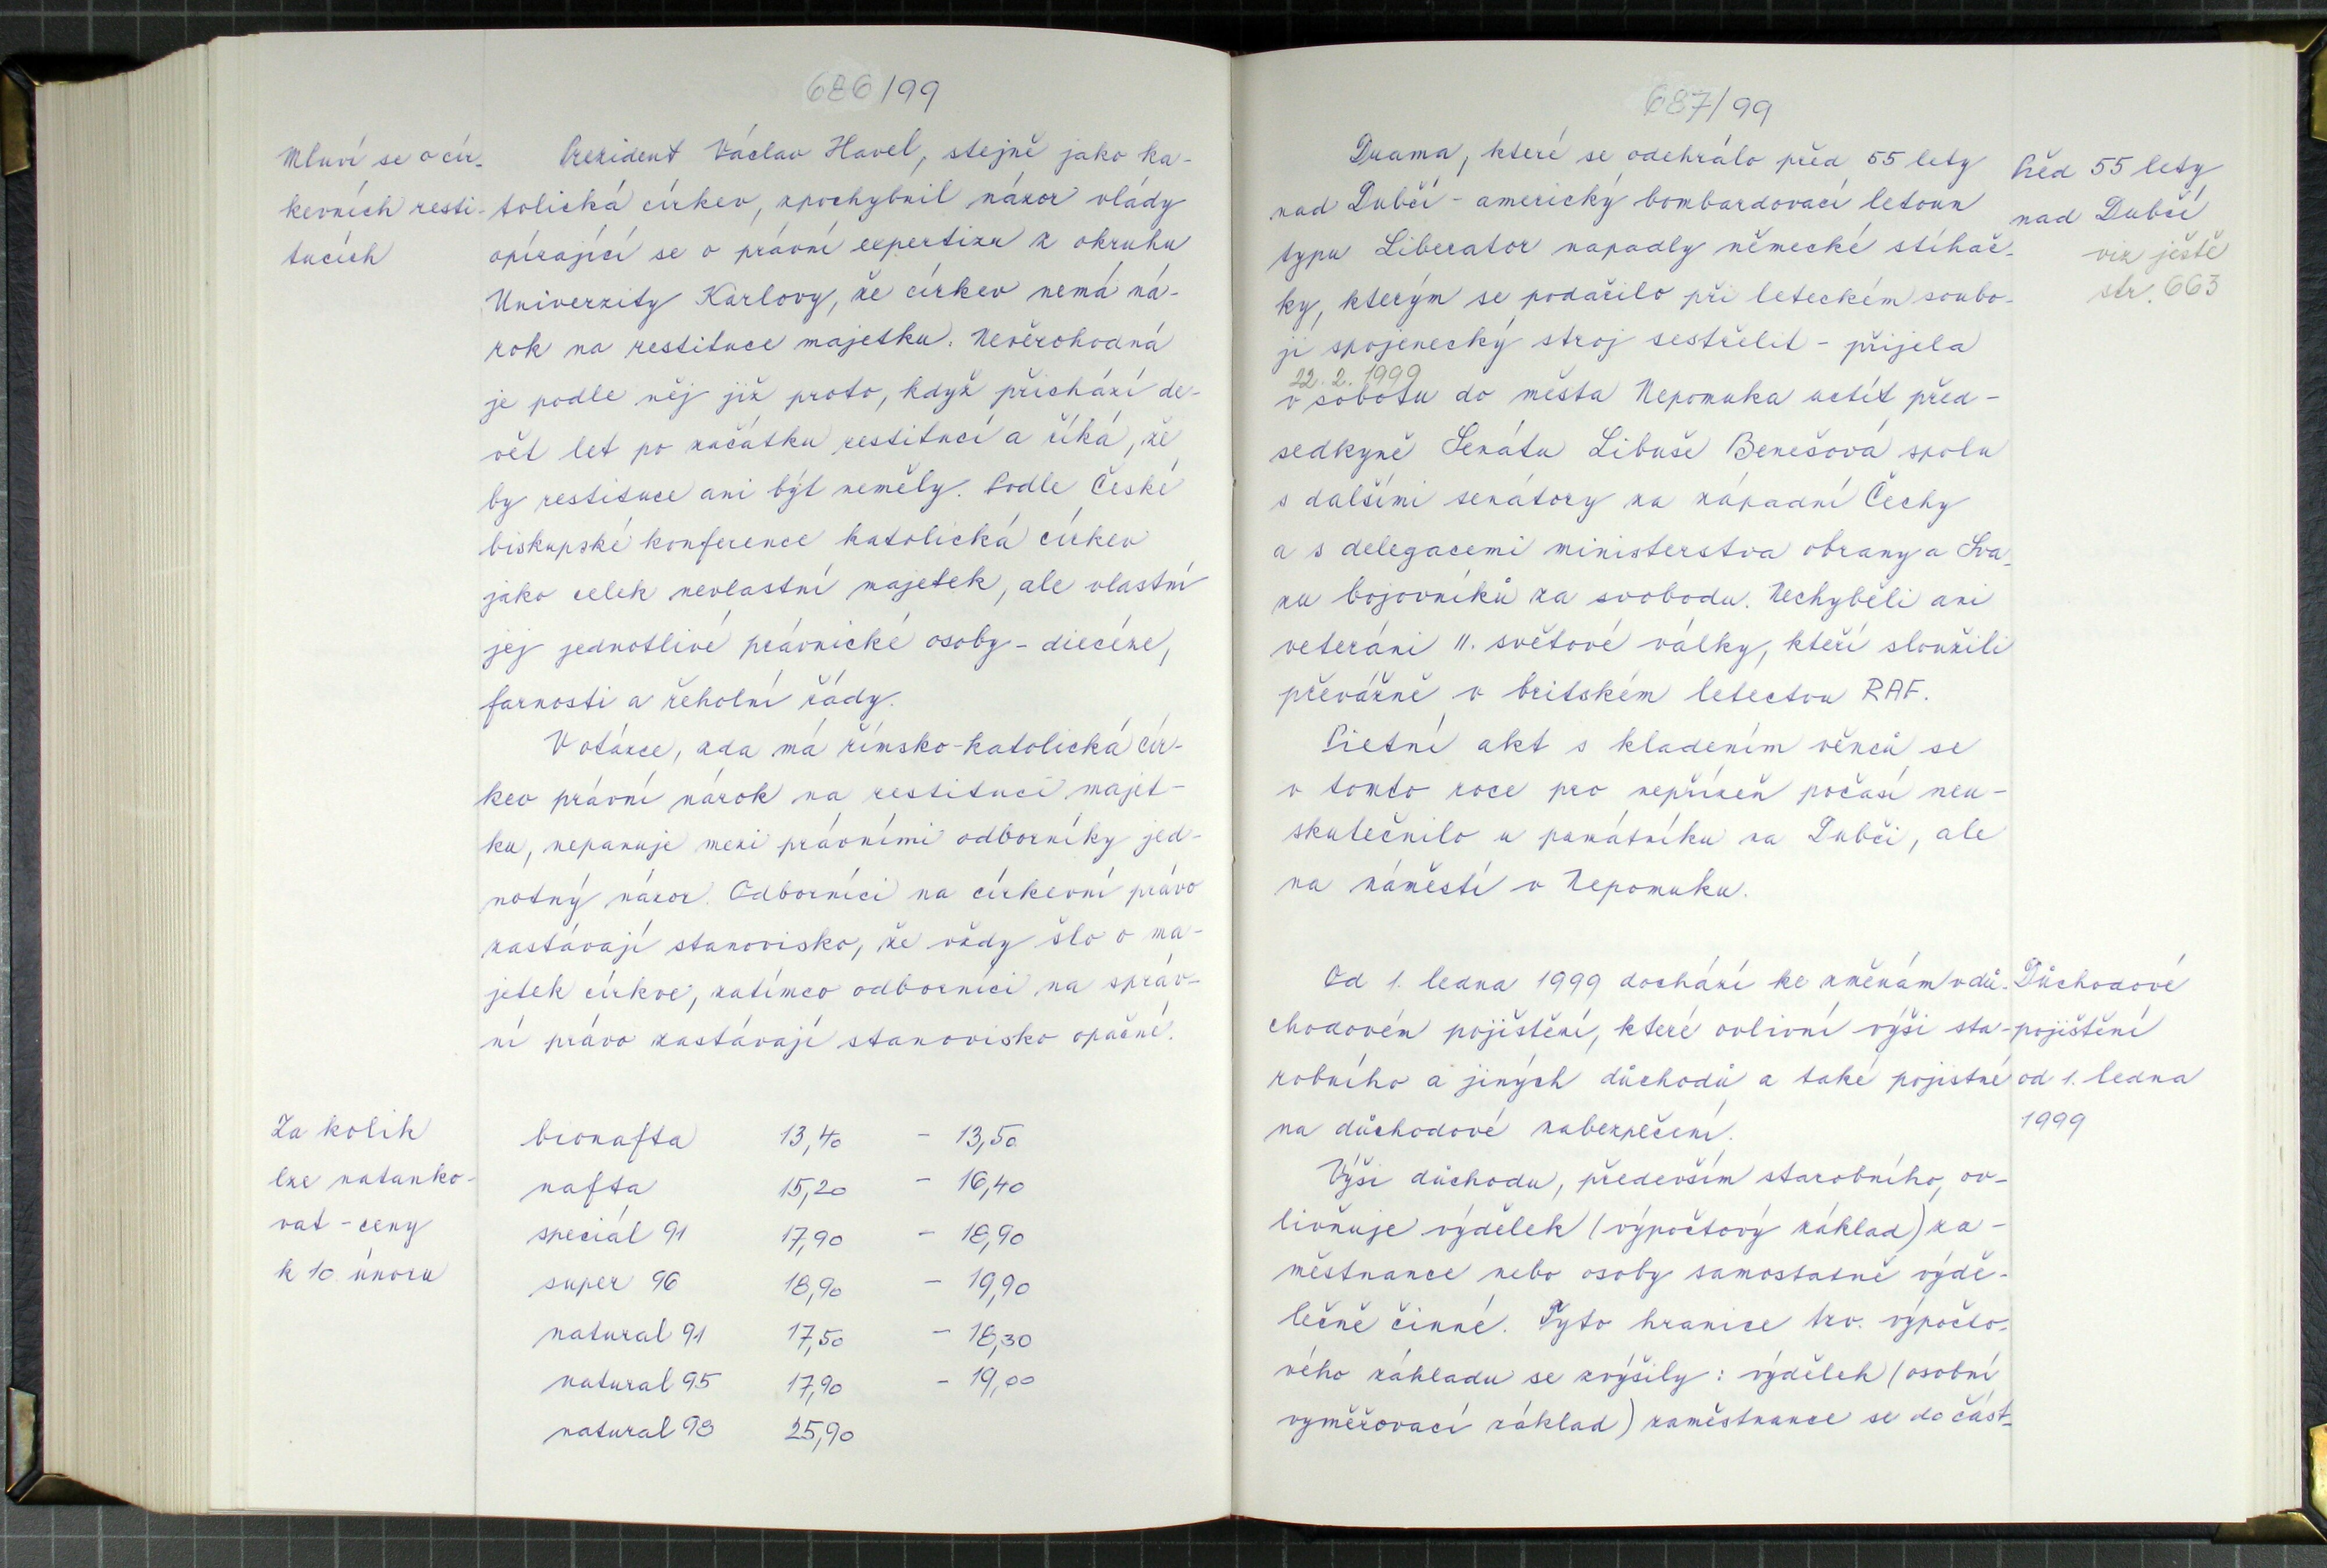 686/99
Mluví se o cír-
kevních resti-
tucích
Prezident Václav Havel, stejně jako ka-
tolická církev, zpochybnil názor vlády
opírající se o právní expertizu z okruhu
Univerzity Karlovy, že církev nemá ná-
rok na restituce majetku. Nevěrohodná
je podle něj již proto, když přichází de-
vět let po začátku restitucí a říká, že
by restituce ani být neměly. Podle České
biskupské konference katolická církev
jako celek nevlastní majetek, ale vlastní
jej jednotlivé právnické osoby - diecéze,
farnosti a řeholní řády.
V otázce, zda má římsko-katolická cír-
kev právní nárok na restituci majet-
ku, nepanuje mezi právními odborníky jed-
notný názor. Odborníci na církevní právo
zastávají stanovisko, že vždy šlo o ma-
jetek církve, zatímco odborníci na správ-
ní právo zastávají stanovisko opačné.
Za kolik
lze natanko-
vat - ceny
k 10. únoru
bionafta 13,40 - 13,50
nafta 15,20 - 16,40
speciál 91 17,90 - 18,90
super 96 18,90 - 19,90
natural 91 17,50 - 18,30
natural 95 17,90 - 19,00
natural 98 25,90
687/99
Drama, které se odehrálo před 55 lety
nad Dubčí - americký bombardovací letoun
typu Liberator napadly německé stíhač-
ky, kterým se podařilo při leteckém soubo-
ji spojenecký stroj sestřelit - přijela
22. 2. 1999
v sobotu do města Nepomuka uctít před-
sedkyně Senátu Libuše Benešová spolu
s dalšími senátory za západní Čechy
a s delegacemi ministerstva obrany a Sva-
zu bojovníků za svobodu. Nechyběli ani
veteráni II. světové války, kteří sloužili
převážně v britském letectvu RAF.
Pietní akt s kladením věnců se
v tomto roce pro nepřízeň počasí neu-
skutečnilo u památníku na Dubči, ale
na náměstí v Nepomuku.
Před 55 lety
nad Dubčí
viz ještě
str. 663
Od 1. ledna 1999 dochází ke změnám v dů-
chodovém pojištění, které ovlivní výši sta-
robního a jiných důchodů a také pojistné
na důchodové zabezpečení.
Výši důchodu, především starobního, ov-
livňuje výdělek (výpočtový základ) za-
městnance nebo osoby samostatně výdě-
lečně činné. Tyto hranice tzv. výpočto-
vého základu se zvýšily: výdělek (osobní
vyměřovací základ) zaměstnance se do část-
Důchodové
pojištění
od 1. ledna
1999